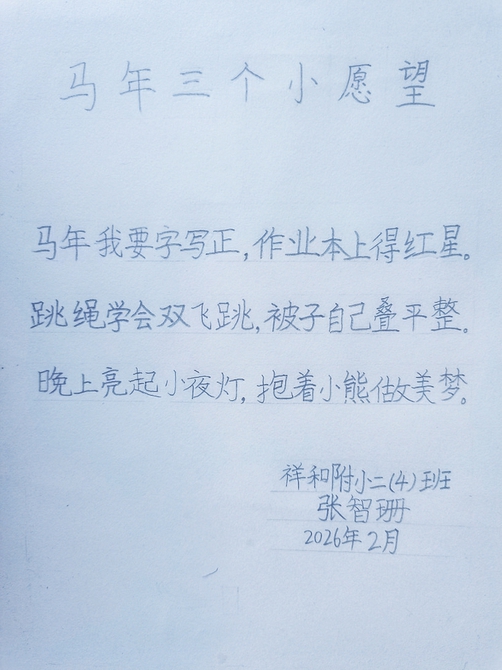 马年三个小愿望
马年我要字写正,作业本上得红星。
跳绳学会双飞跳,被子自己叠平整。
晚上亮起小夜灯,抱着小熊做美梦。
祥和附小二(4)班
张智珊
2026年2月